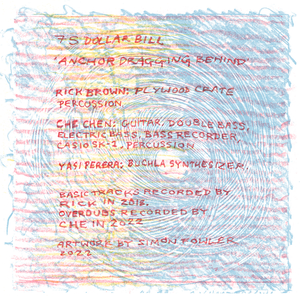 75 DOLLAR BILL
'ANCHOR DRAGGING BEHIND'
RICK BROWN: PLYWOOD CRATE
PERCUSSION
CHE CHEN: GUITAR, DOUBLE BASS,
ELECTRIC BASS, BASS RECORDER,
CASIO SK-1, PERCUSSION
YASI PERERA: BUCHLA SYNTHESIZER
BASIC TRACKS RECORDED BY
RICK IN 2018,
OVERDUBS RECORDED BY
CHE IN 2022
ARTWORK BY SIMON FOWLER
2022